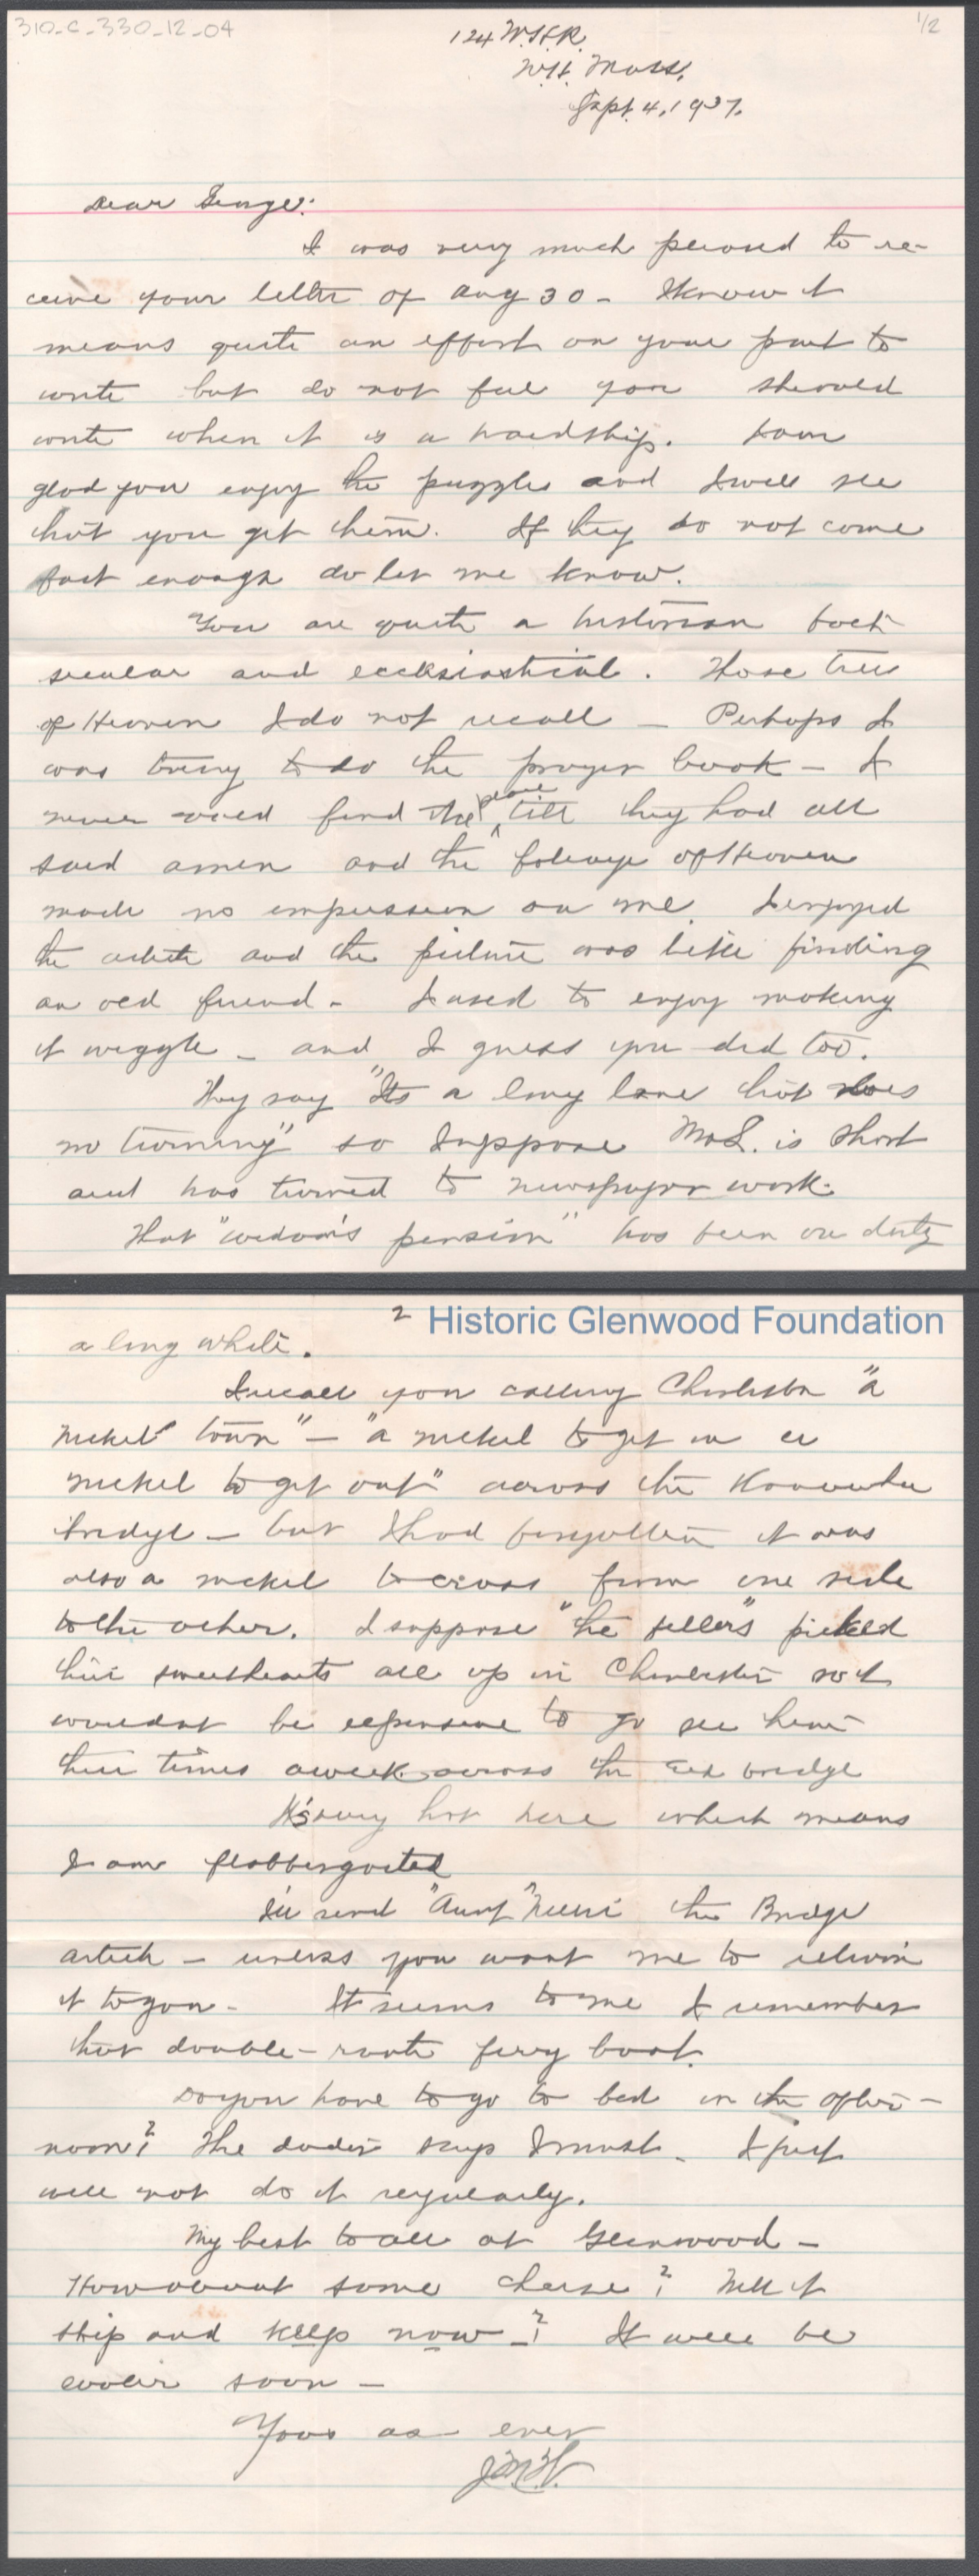 310-C-330-12-04
1/2
124 W.S.R.
N.H. Mass.
Sept. 4, 1937.
Dear George:
I was very much pleased to re-
ceive your letter of Aug 30 - I know it
means quite an effort on your part to
write but do not feel you should
write when it is a hardship. I am
glad you enjoy the puzzles and I will see
that you get them. If they do not come
fast enough do let me know.
You are quite a historian both
secular and ecclesiastical. Those trees
of Heaven I do not recall - Perhaps I
was trying to do the prayer book - I
never could find the place till they had all
said amen and the foliage of Heaven
made no impression on me. I enjoyed
the article and the picture was like finding
an old friend - I used to enjoy making
it wiggle - and I guess you did too.
They say "Its a long lane that does
no turning" so I suppose Mr L. is short
and has turned to newspaper work.
That "widow's pension" has been on duty
2 Historic Glenwood Foundation
a long while.
I recall you calling Charleston "a
nickel town" - "a nickel to get in a
nickel to get out" across the Kanawha
bridge - but I had forgotten it was
also a nickel to cross from one side
to the other. I suppose "the fellers" picked
their sweethearts all up in Charleston so it
wouldnt be expensive to go see them
three times a week across the Elk bridge
It's very hot here which means
I am flabbergasted
I'll send "Aunt" Nellie the Bridge
article - unless you want me to return
it to you - It seems to me I remember
that double-route ferry boat.
Do you have to go to bed in the after-
noon? The doctor says I must - I just
will not do it regularly.
My best to all at Glenwood -
How about some cheese? Will it
ship and keep now -? It will be
cooler soon -
Yours as ever
J.M.W.